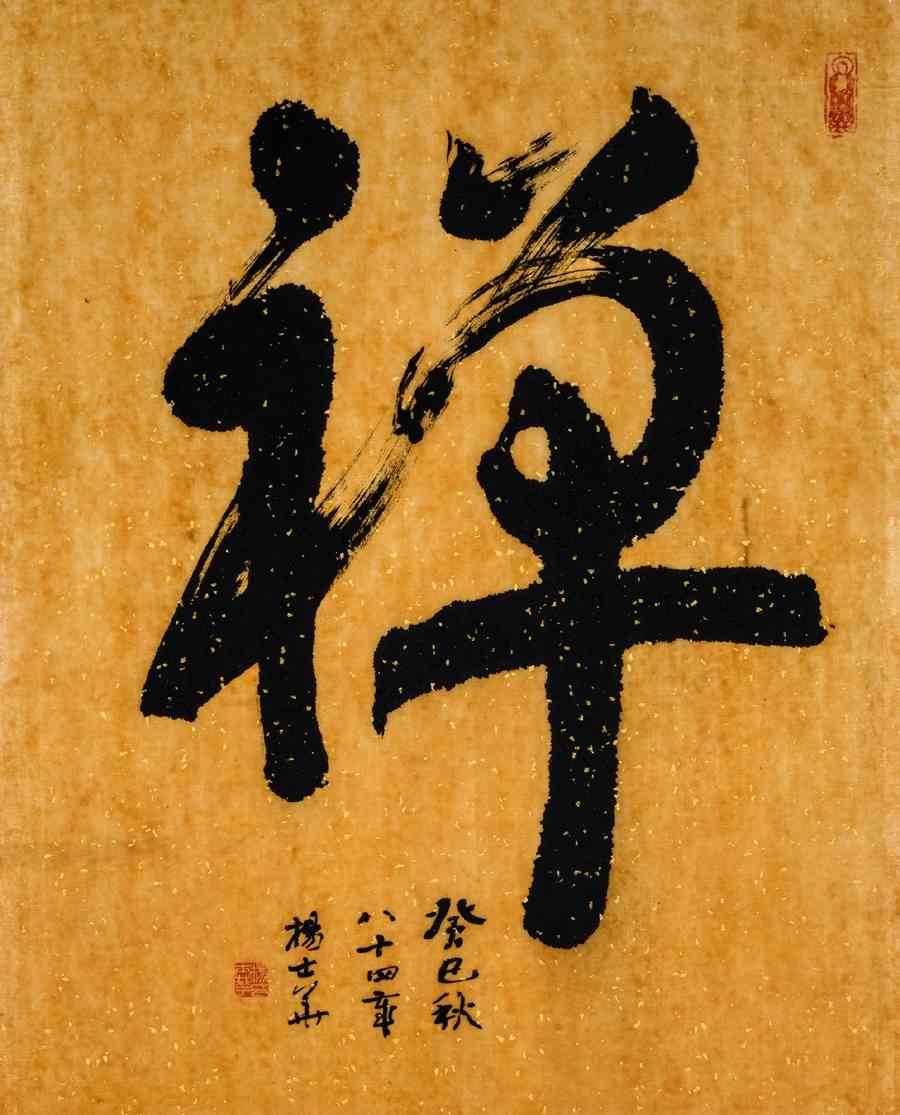 禅
癸巳秋
八十四
楊士華